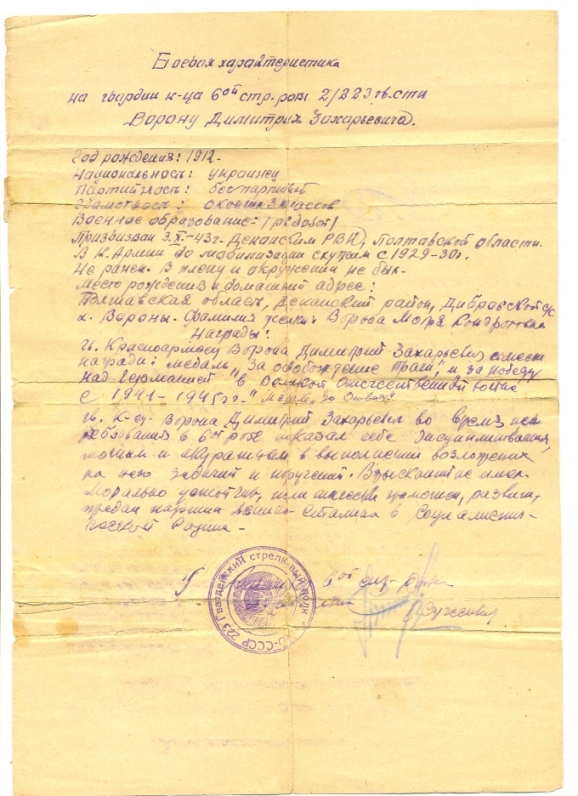 Боевая характеристика
на гвардии к-ца 6ой стр. роты 2/223 гв. сп
Ворону Димитрия Захарьевича.
Год рождения: 1912.
Национальность: украинец
Партийность: беспартийный
окончил 3 классов
Военное образование: /рядовой/
Призыван 3.X.-43г. Диканским РВК, Полтавской области.
В К. Армии до мобилизации служил с 1929-30г.
Не ранен. В плену и окружении не был.
Место рождения и домашний адрес:
Полтавская область, Диканский район, Дибровской с/с
х. Вороны. Фамилия жены: Ворона Мотря
Награды:
Красноармеец Ворона Димитрий Захарьевич имеет
награди: медаль "За освобождение Праги", и за победу
над Германией в Великой Отечественной войне
с 1941-1945гг."
гв. к-ец. Ворона Димитрий Захарьевич во время
в 6ой роте показал себе
в выполнении возложеных
на него задачий и поручений. Взысканий не имел.
Морально устойчив,
предан партии Ленина Сталина и
Родине -
6ой
223 Гвардейский стрелковый полк
НКО-СССР